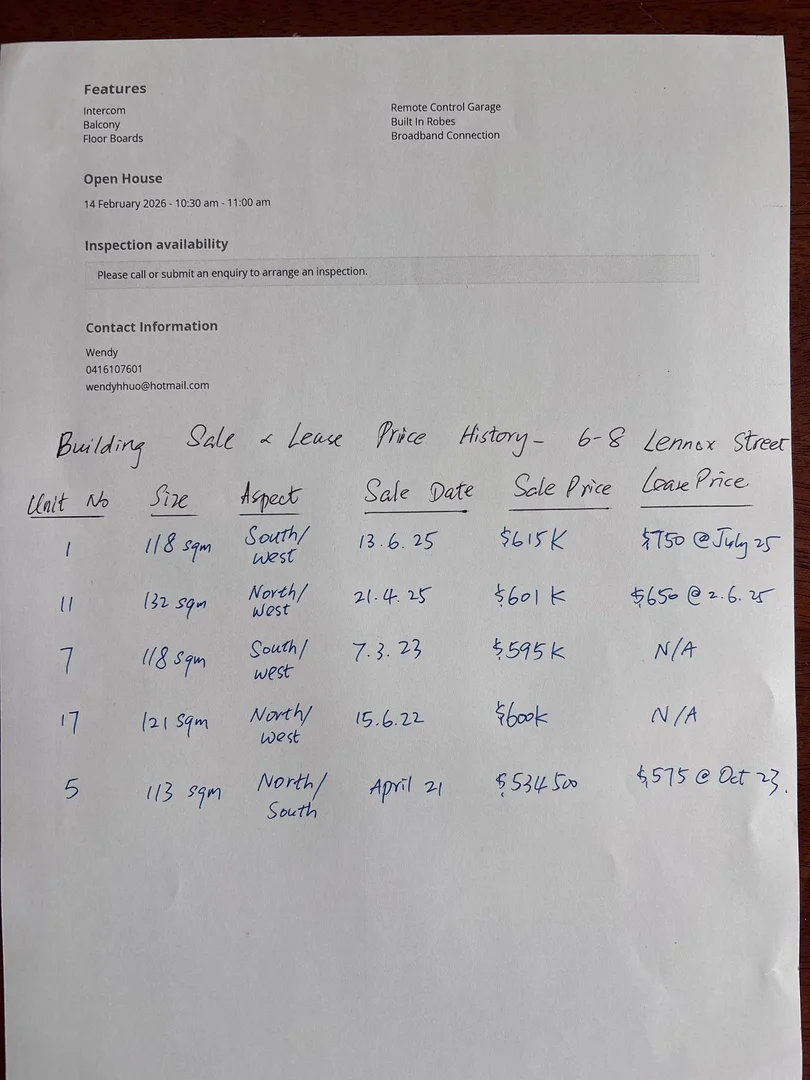 Features
Intercom
Balcony
Floor Boards
Remote Control Garage
Built In Robes
Broadband Connection
Open House
14 February 2026 - 10:30 am - 11:00 am
Inspection availability
Please call or submit an enquiry to arrange an inspection.
Contact Information
Wendy
0416107601
wendyhhuo@hotmail.com
Building Sale & Lease Price History - 6-8 Lennox Street
Unit No Size Aspect Sale Date Sale Price Lease Price
1 118 sqm South/West 13.6.25 $615K $750 @ July 25
11 132 sqm North/West 21.4.25 $601K $650 @ 2.6.25
7 118 sqm South/West 7.3.23 $595K N/A
17 121 sqm North/West 15.6.22 $600k N/A
5 113 sqm North/South April 21 $534500 $575 @ Oct 23.